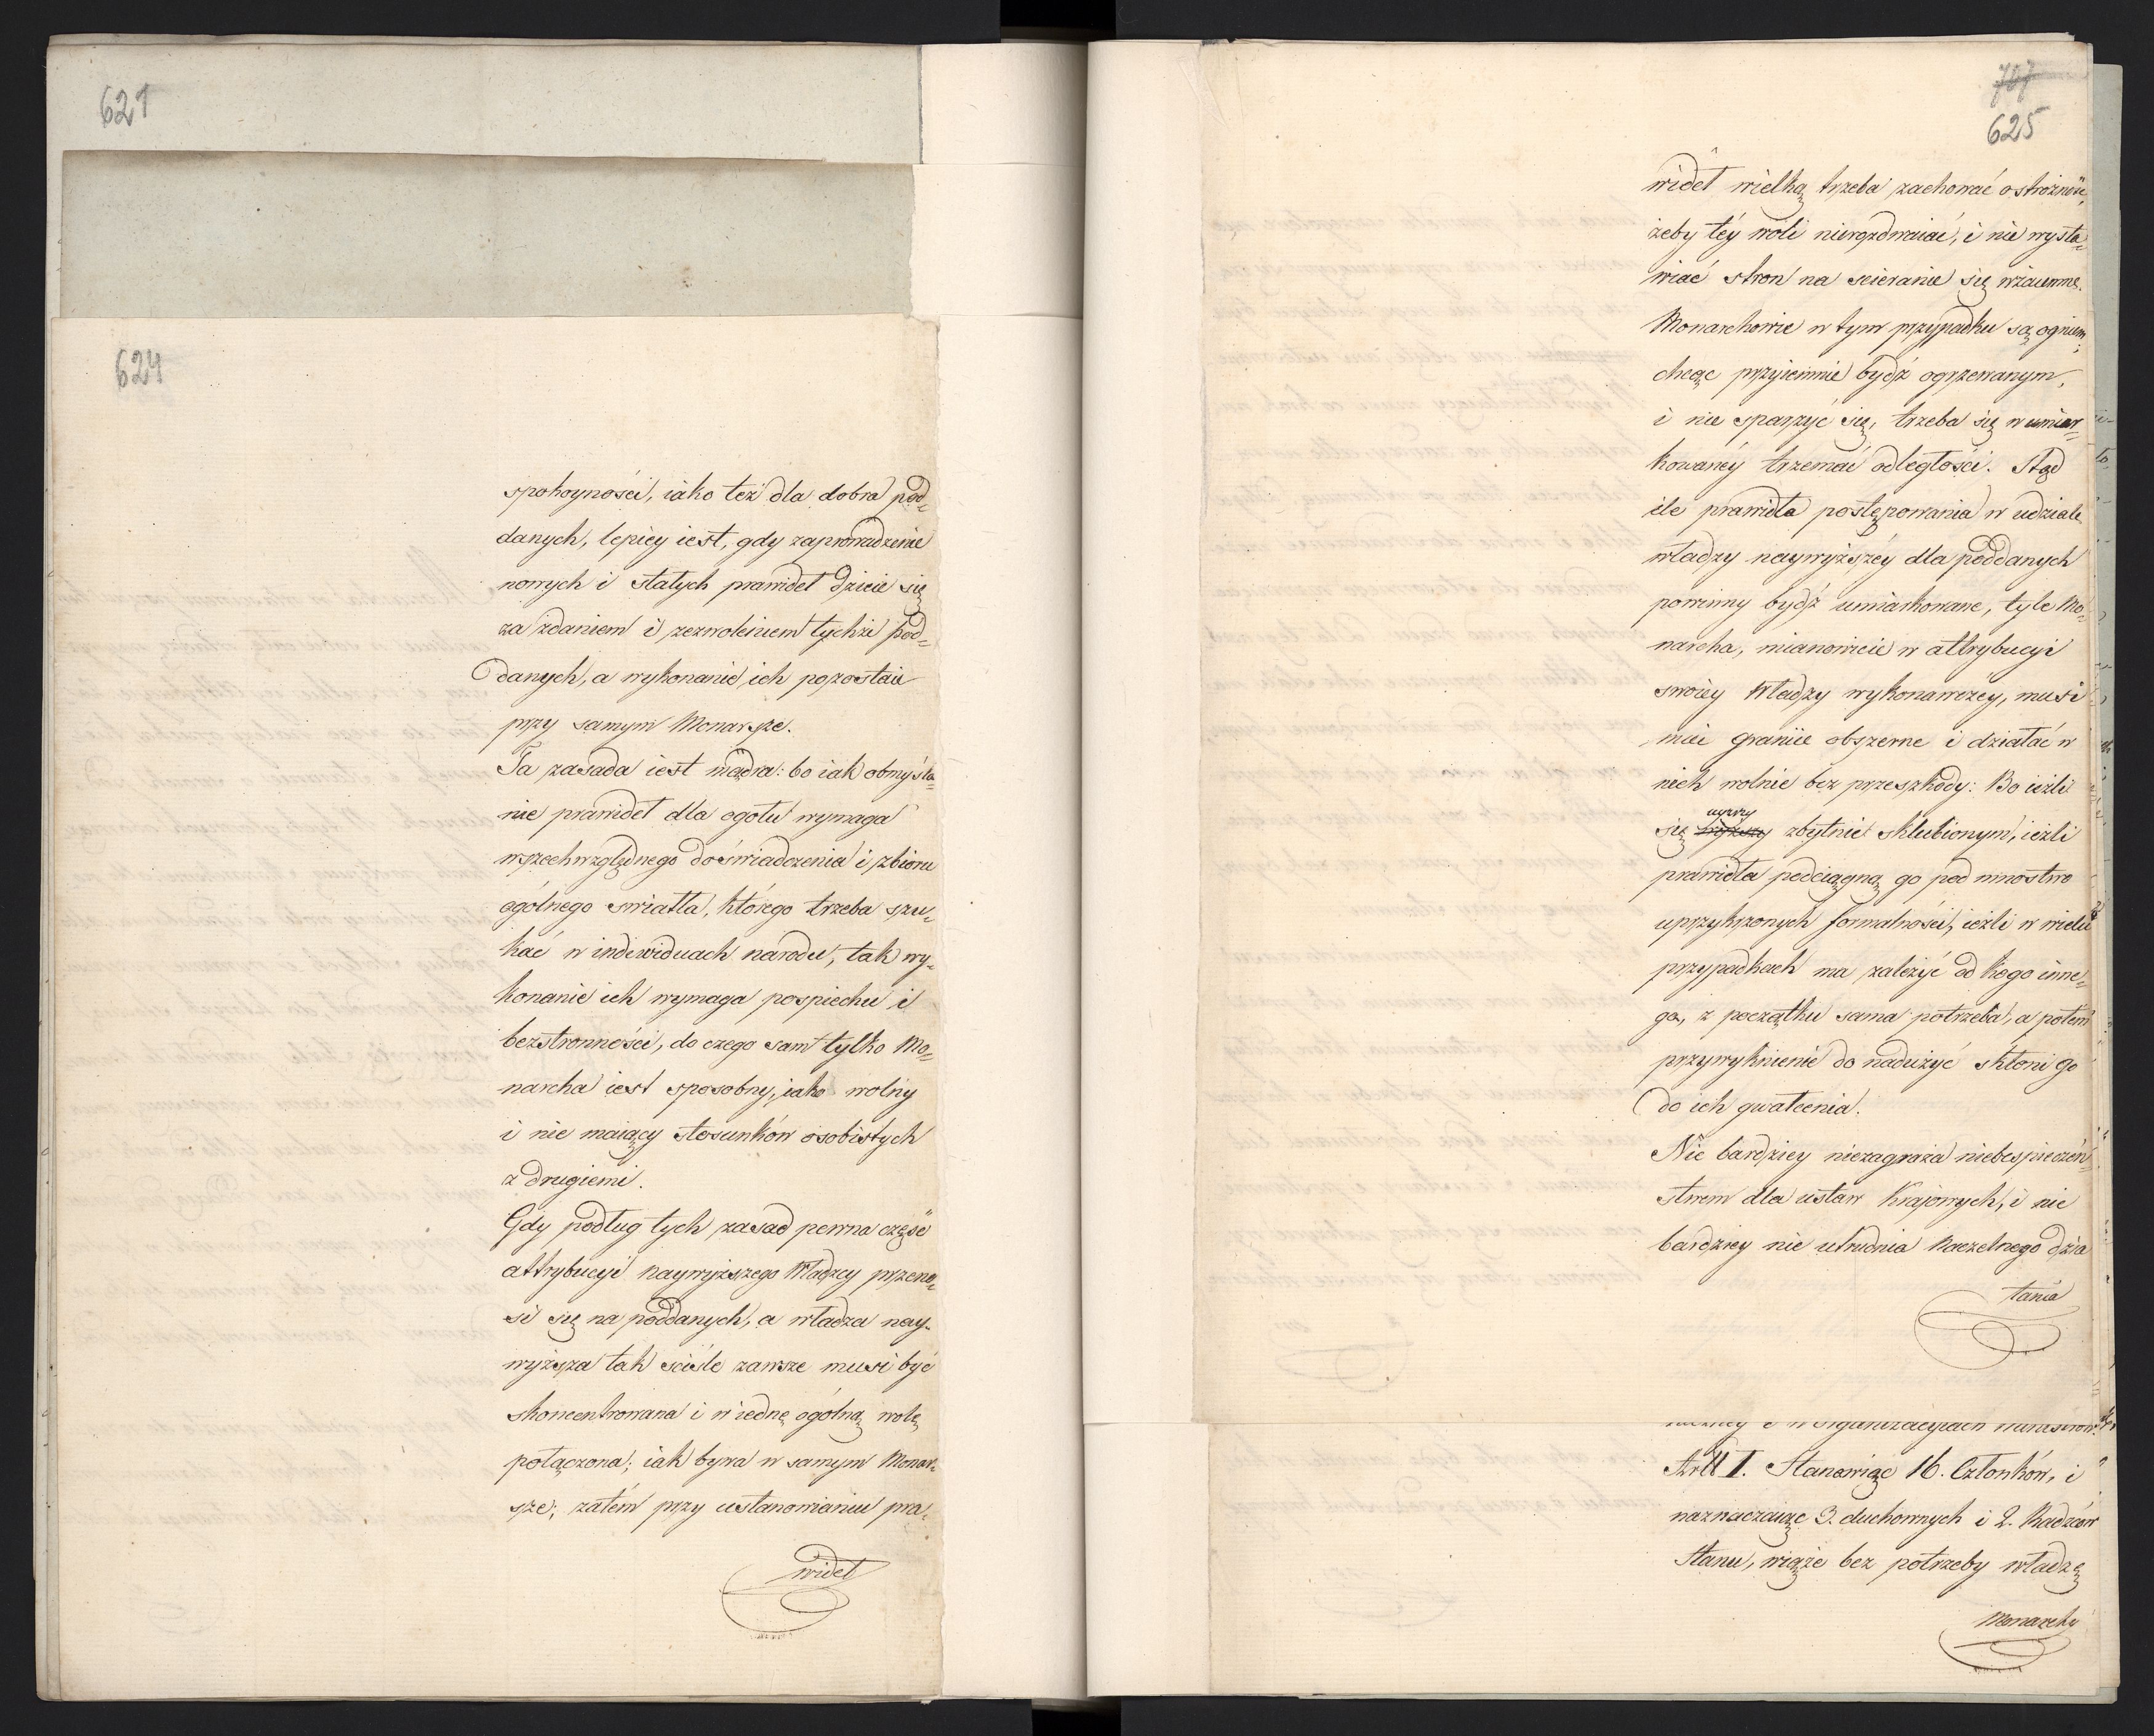 621
624
spokoyności, iako też dla dobra pod„
danych, lepiéy iest, gdy zaprowadzenie
nowych i stałych prawideł dzieie się
za zdaniem i zezwoleniem tychże pod„
danych, a wykonanie ich pozostaie
przy samym Monarsze.
Ta zasada iest mądra: bo iak obmyśla„
nie prawideł dla ogołu wymaga
wszechwzględnego doświadczenia i zbioru
ogólnego swiatła, którego trzeba szu„
kać w indiwiduach narodu, tak wy„
konanie ich wymaga pospiechu i
bezstronności, do czego sam tylko Mo„
narcha iest sposobny, iako wolny
i nie maiący stosunków osobistych
z drugiemi.
Gdy podług tych zasad pewna częsć
attrybucyi naywyższego Władzcy przeno„
si się na poddanych, a władza nay„
wyższa tak ściśle zawsze musi być
skoncentrowana i w iednę ogólną wolę
połączona; iak bywa w samym Monar„
sze; zatém przy ustanowianiu pra„
wideł
707
625
wideł wielką trzeba zachować ostrożność,
żeby téy woli nierozdwaiać, i nie wysta„
wiać stron na scieranie się wzaiemne.
Monarchowie w tym przypadku są ogniem;
chcąc przyiemnie bydź ogrzewanym,
i nie sparzyć się, trzeba się w umiar„
kowanéy trzemać odległości. Stąd
ile prawidła postępowania w udziale
władzy naywyższéy dla poddanych
powinny bydź umiarkowane, tyle Mo„
narcha, mianowicie w attrybucyi
swoiéy Władzy wykonawczéy, musi
mieć granice obszerne i działać w
nich wolnie bez przeszkody: Bo ieżli
uyrzy
się zbytnie skłubionym, ieżli
prawidła podciągną go pod mnostwo
uprzykrzonych formalności, ieżli w wielu
przypadkach ma zależyć od kogo inne„
go, z początku sama potrzeba, a potém
przywyknienie do nadużyć skłoni go
do ich gwałcenia.
Nic bardziey niezagraża niebespieczeń„
stwem dla ustaw Krajowych, i nic
bardziey nie utrudnia Naczelnego dzia
łania
Artt I. Stanowiąc 16. Członków, i
naznaczaiąc 3. duchownych i 2. Radzców
Stanu, wiąże bez potrzeby władzę
Monarchy